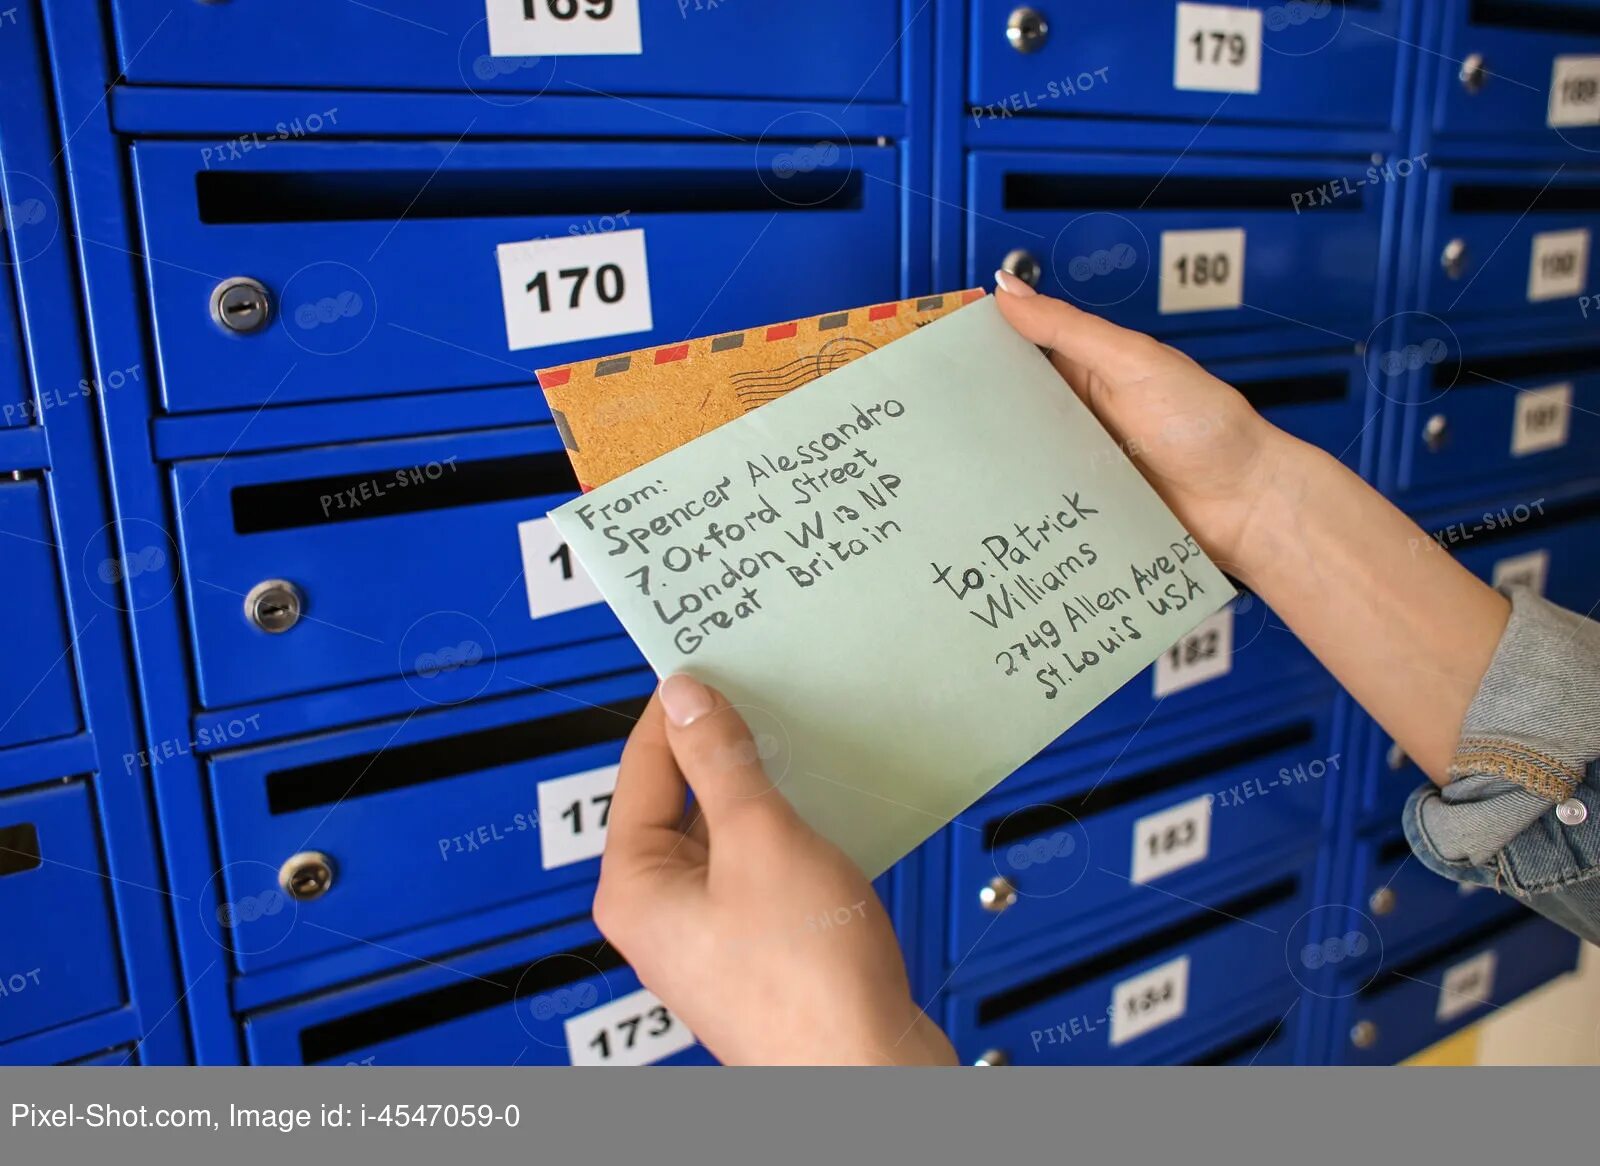 169
179
189
170
180
190
From:
Spencer Alessandro
7. Oxford Street
London W 13 NP
Great Britain
to: Patrick
Williams
2749 Allen Ave, D5
St. Louis USA
181
182
183
173
184
PIXEL-SHOT
Pixel-Shot.com, Image id: i-4547059-0